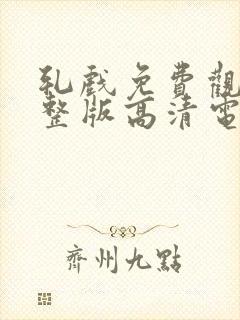 乳戲免費觀
整版高清電
齊州九點